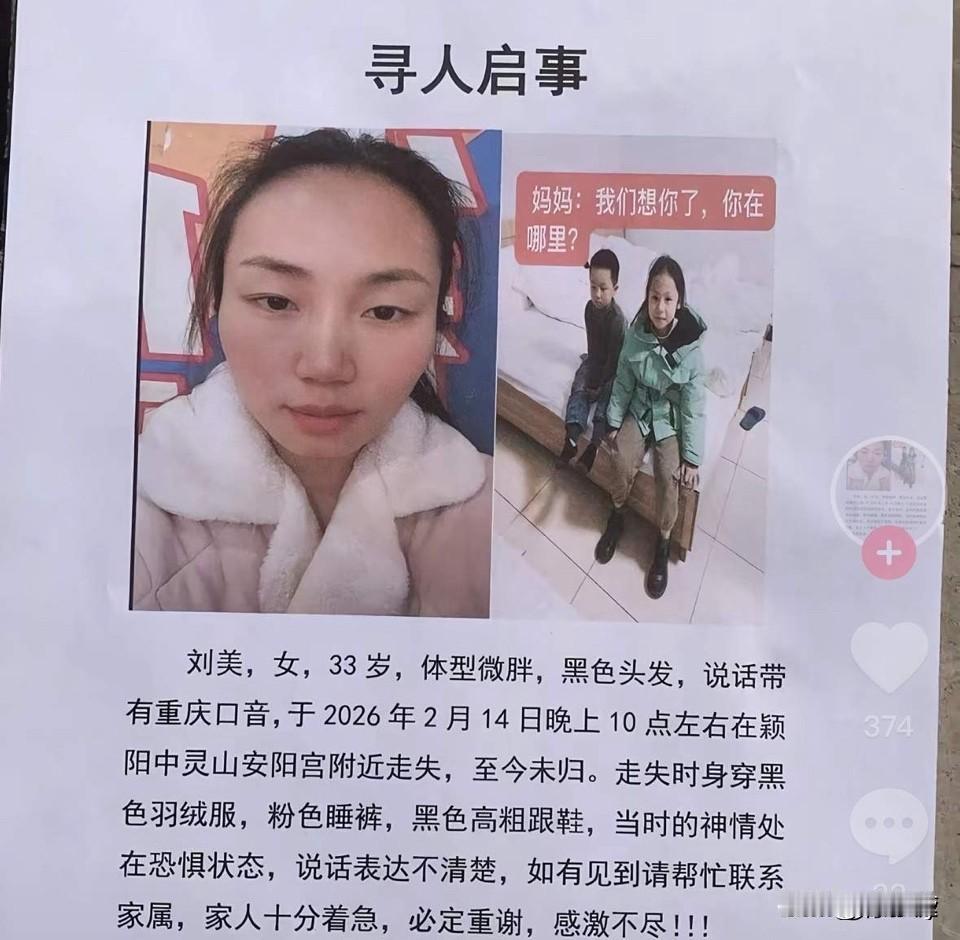 寻人启事
妈妈：我们想你了，你在
哪里？
刘美，女，33岁，体型微胖，黑色头发，说话带
有重庆口音，于2026年2月14日晚上10点左右在颍
阳中灵山安阳宫附近走失，至今未归。走失时身穿黑
色羽绒服，粉色睡裤，黑色高粗跟鞋，当时的神情处
在恐惧状态，说话表达不清楚，如有见到请帮忙联系
家属，家人十分着急，必定重谢，感激不尽!!!
374